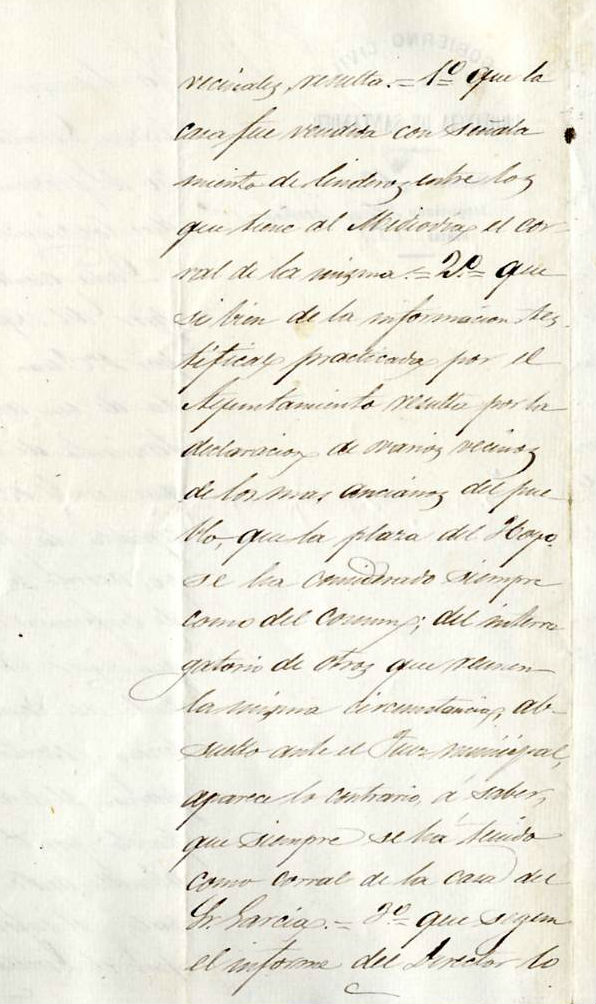 vecinales, resulta.= 1º que la
casa fue vendida con señala
miento de linderos entre los
que tiene al Mediodia el cor-
ral de la misma.= 2º= que
si bien de la informacion tes-
tifical practicada por el
Ayuntamiento resulta por la
declaracion de varios vecinos
de los mas ancianos del pue-
blo, que la plaza del
se ha considerado siempre
como del comun; del interro
gatorio de otros que reunen
la misma circunstancia, ab-
suelto ante el Juez municipal,
aparece lo contrario, á saber,
que siempre se ha tenido
como corral de la casa del
Sr. Garcia.= 3º que segun
el informe del Director lo
GOBIERNO CIVIL